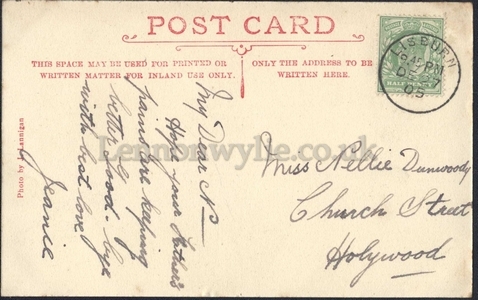 POST CARD
THIS SPACE MAY BE USED FOR PRINTED OR
WRITTEN MATTER FOR INLAND USE ONLY.
ONLY THE ADDRESS TO BE
WRITTEN HERE.
LISBURN
05
HALFPENNY
My Dear N—
Hope your Father's
pains are keeping
better. Good-bye
with best love
Jeanie
Miss Nellie Dunwoody
Church Street
Holywood
Photo by J. Lannigan
Tennonwylie.co.uk